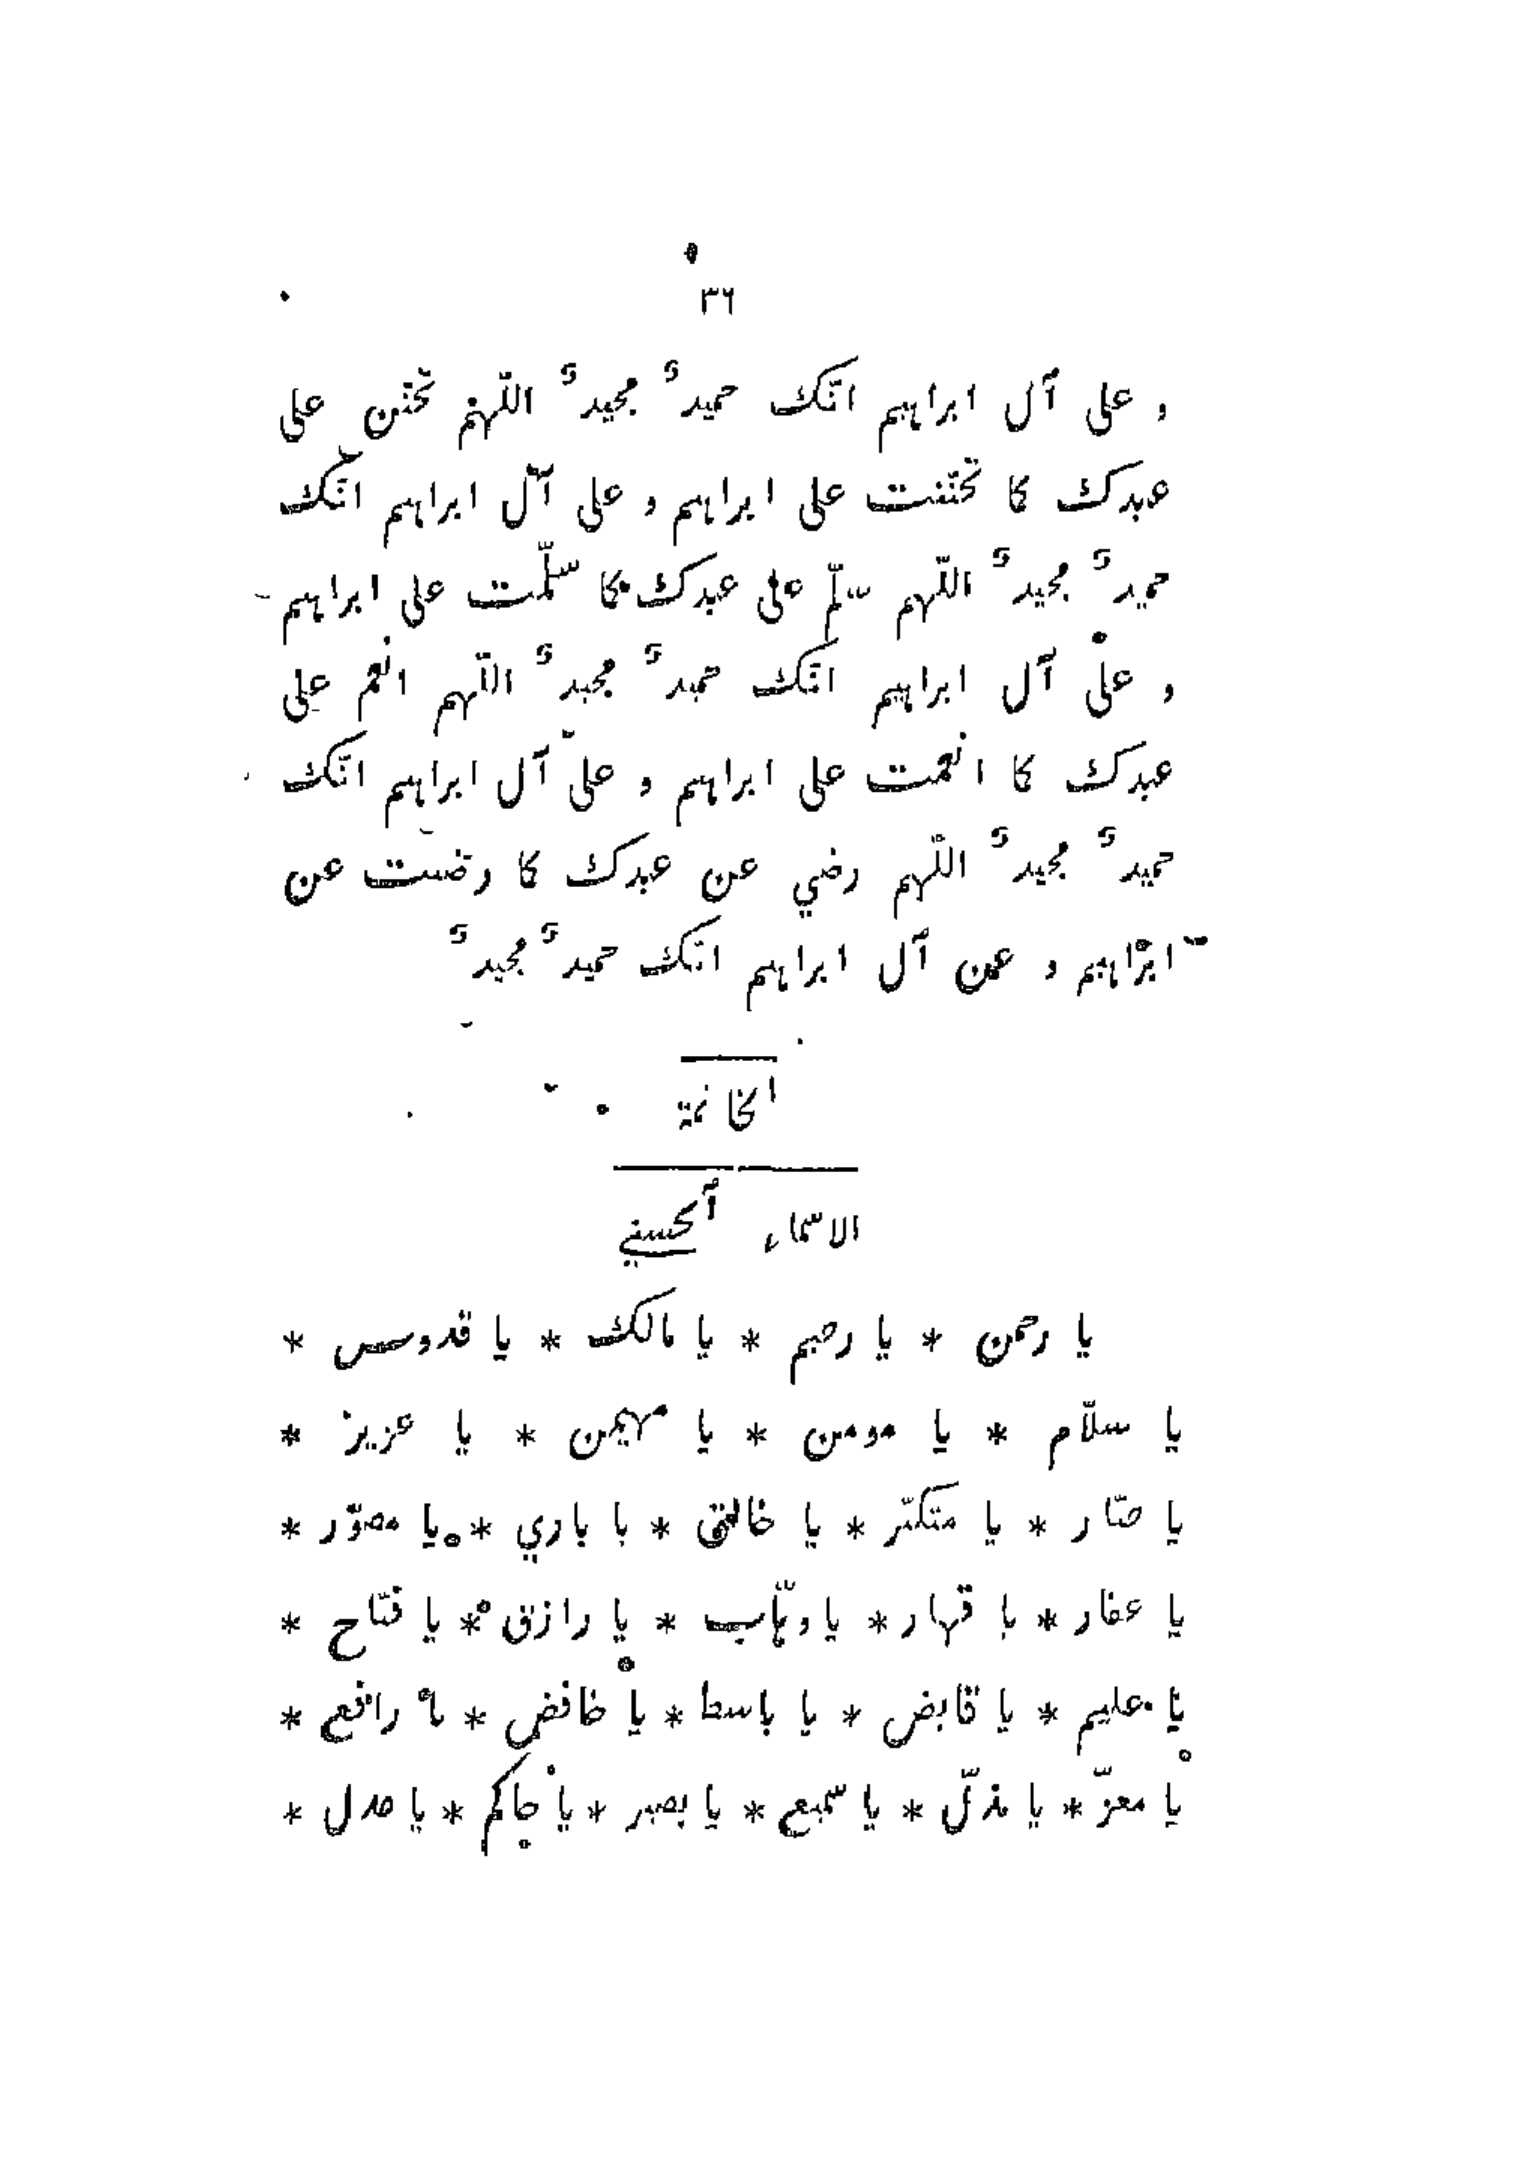 ٣٦
و على آل ابراهيم انّك حميدٌ مجيدٌ اللّهم تحنن على
عبدك كما تحنّنت على ابراهيم و على آل ابراهيم انّك
حميدٌ مجيدٌ اللّهم سلّم على عبدك كما سلّمت على ابراهيم
و على آل ابراهيم انّك حميدٌ مجيدٌ اللّهم انعم على
عبدك كما انعمت على ابراهيم و على آل ابراهيم انّك
حميدٌ مجيدٌ اللّهم رضي عن عبدك كما رضيت عن
ابراهيم و عن آل ابراهيم انّك حميدٌ مجيدٌ
الخاتمة
الاسماء الحسني
يا رحمن * يا رحيم * يا مالك * يا قدوس *
يا سلّام * يا مومن * يا مهيمن * يا عزيز *
يا جبّار * يا متكبّر * يا خالق * يا باري * يا مصوّر *
يا غفار * يا قهار * يا وهّاب * يا رازق * يا فتّاح *
يا عليم * يا قابض * يا باسط * يا خافض * يا رافع *
يا معزّ * يا مذلّ * يا سميع * يا بصير * يا حاكم * يا عدل *